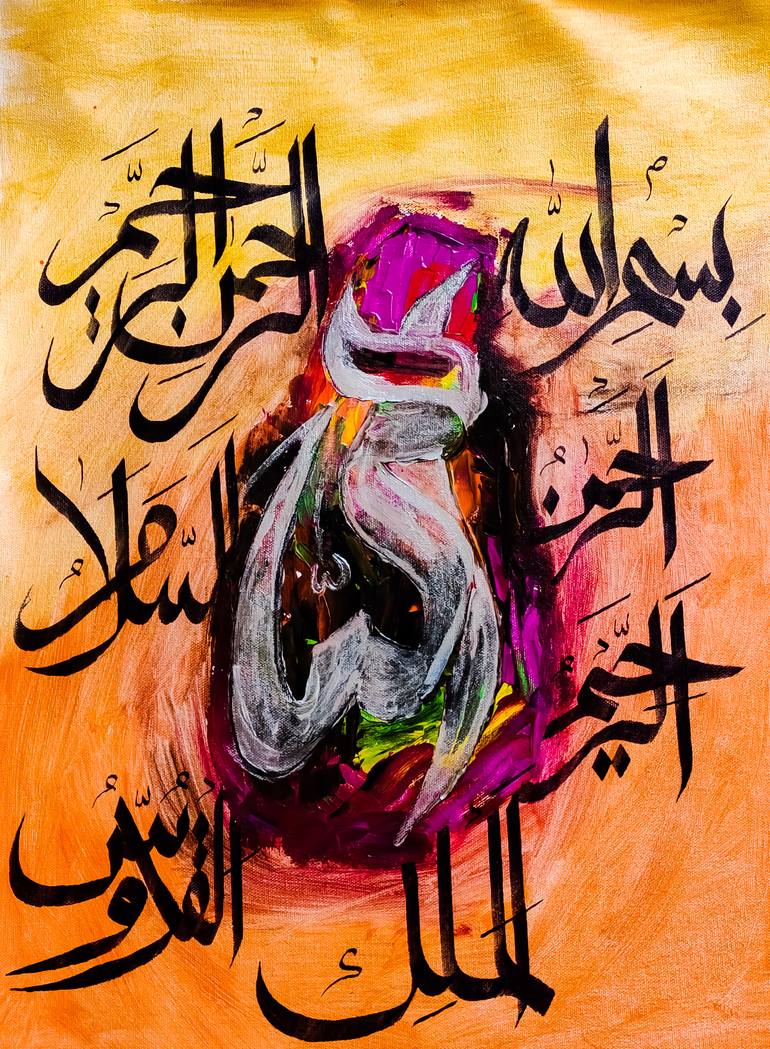 بِسْمِ اللّٰهِ الرَّحْمٰنِ الرَّحِيْمِ
الرَّحْمٰنُ
الرَّحِيْمُ
الْمَلِكُ
الْقُدُّوْسُ
السَّلَامُ